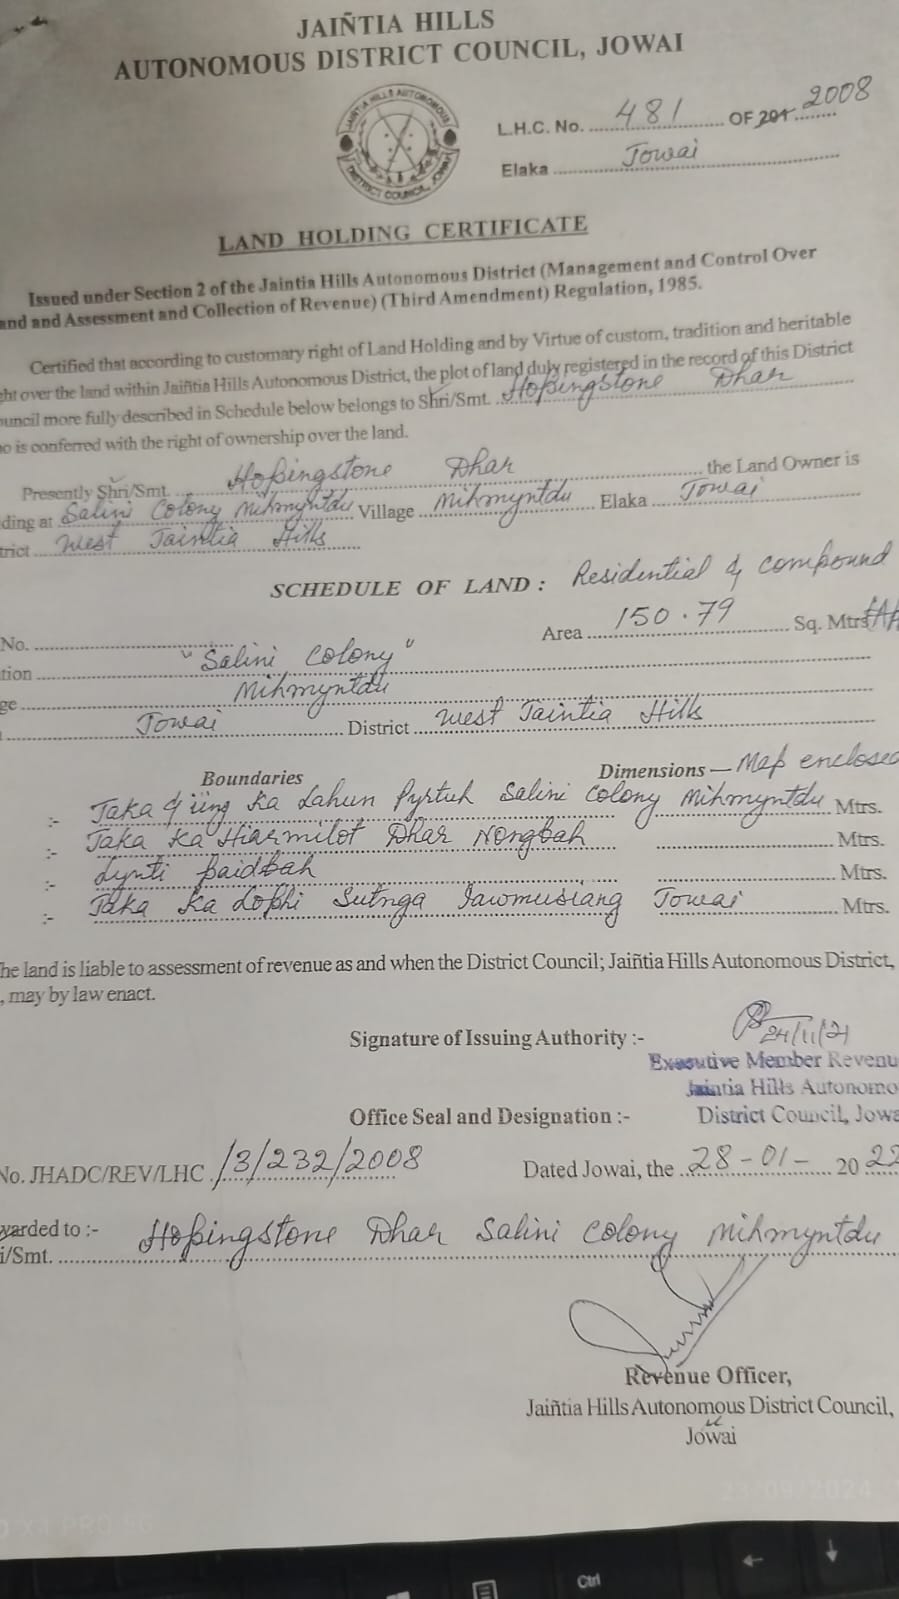 JAIÑTIA HILLS
AUTONOMOUS DISTRICT COUNCIL, JOWAI
JAINTIA HILLS AUTONOMOUS DISTRICT COUNCIL, JOWAI
L.H.C. No. 481 OF 201 2008
Elaka Jowai
LAND HOLDING CERTIFICATE
Issued under Section 2 of the Jaintia Hills Autonomous District (Management and Control Over
and and Assessment and Collection of Revenue) (Third Amendment) Regulation, 1985.
Certified that according to customary right of Land Holding and by Virtue of custom, tradition and heritable
ght over the land within Jaiñtia Hills Autonomous District, the plot of land duly registered in the record of this District
ouncil more fully described in Schedule below belongs to Shri/Smt. Hopingstone Dhar
o is conferred with the right of ownership over the land.
Presently Shri/Smt. Hopingstone Dhar the Land Owner is
ding at Salini Colony Mihmyntdu Village Mihmyntdu Elaka Jowai
trict West Jaintia Hills
SCHEDULE OF LAND : Residential & compound
No. Area 150.79 Sq. Mtrs
tion "Salini Colony"
ge Mihmyntdu
Jowai District West Jaintia Hills
Boundaries Dimensions — Map enclosed
:- Jaka & üng Ka Lahun Pyrtuh Salini Colony Mihmyntdu Mtrs.
:- Jaka Ka Hiarmilot Dhar Nongbah Mtrs.
:- Lynti Paidbah Mtrs.
:- Jaka Ka Lophi Sutnga Iawmusiang Jowai Mtrs.
he land is liable to assessment of revenue as and when the District Council; Jaiñtia Hills Autonomous District,
, may by law enact.
Signature of Issuing Authority :-
24/11/21
Executive Member Revenu
Jaintia Hills Autonomo
Office Seal and Designation :- District Council, Jowa
No. JHADC/REV/LHC /3/232/2008 Dated Jowai, the 28-01- 2022
warded to :-
i/Smt. Hopingstone Dhar Salini Colony Mihmyntdu
Revenue Officer,
Jaiñtia Hills Autonomous District Council,
Jowai
23/09/2024
X4 PRO 5G
Ctrl